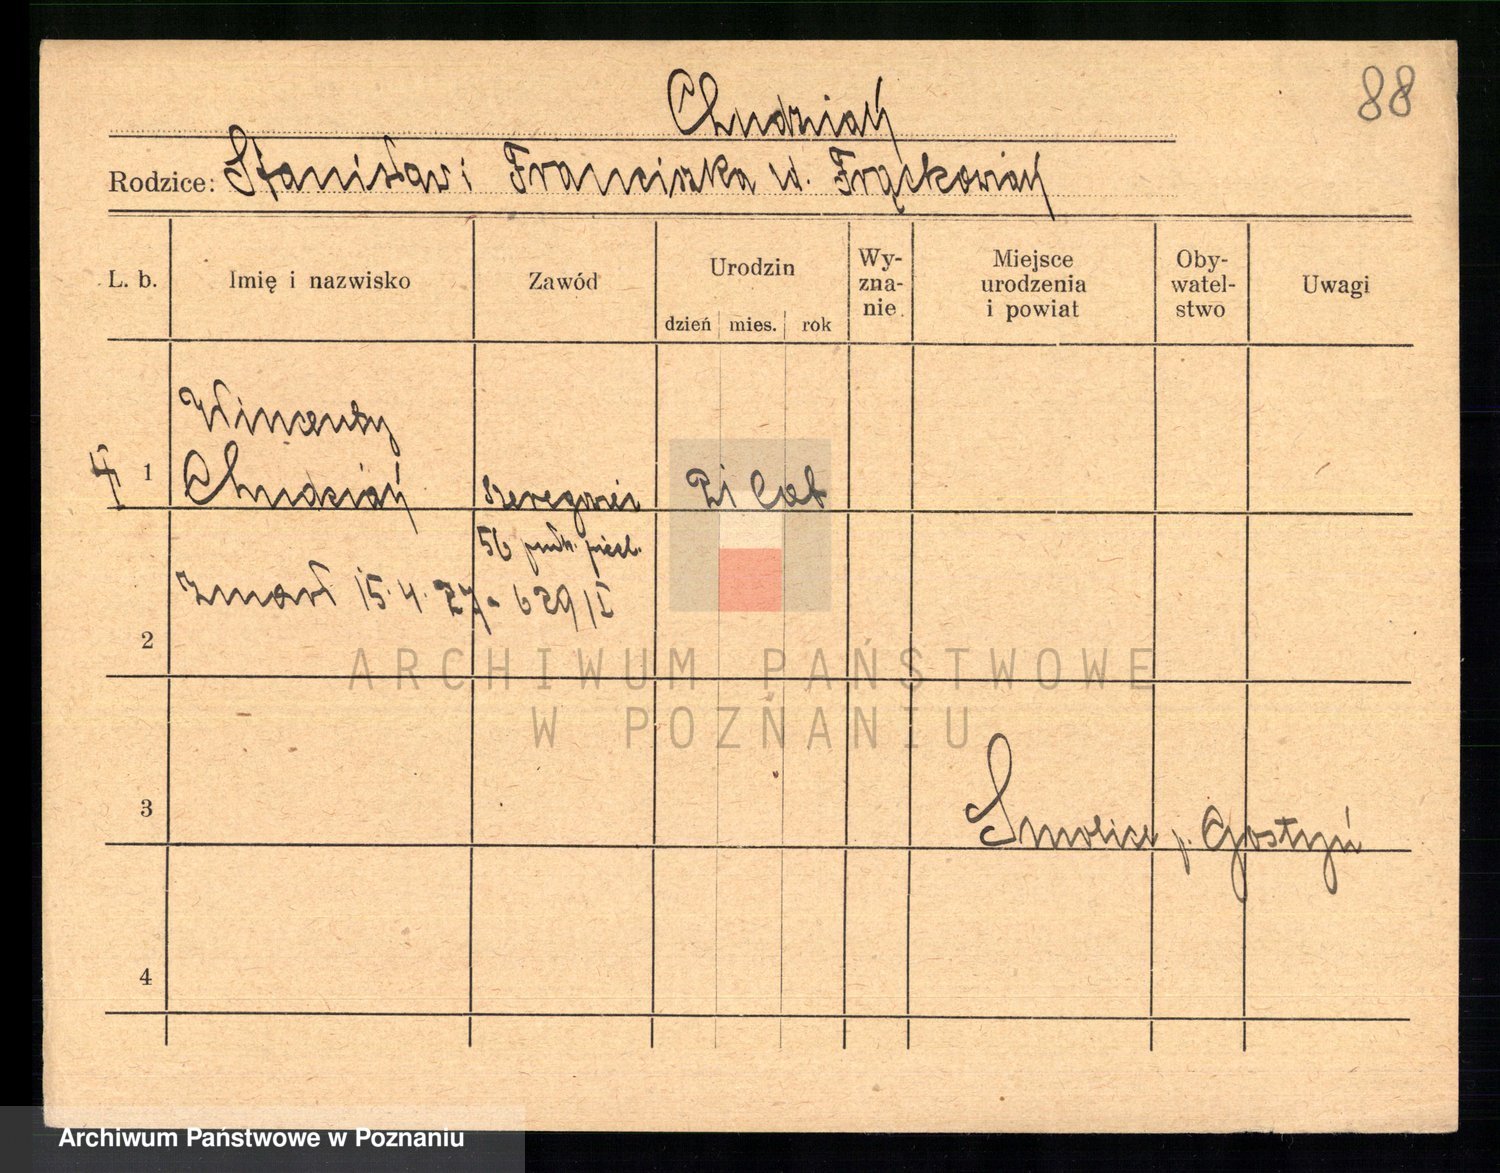 88
Chudziak
Rodzice: Stanisław i Franciszka ur. Frąckowiak
L. b.
Imię i nazwisko
Zawód
Urodzin
dzień mies. rok
Wy-
zna-
nie
Miejsce
urodzenia
i powiat
Oby-
watel-
stwo
Uwagi
1
Wincenty
Chudziak
szeregowiec
21 lat
56 pułk. piech.
zmarł 15.4.27 - 629/I
2
ARCHIWUM PAŃSTWOWE
W POZNANIU
3
Smolice p. Gostyń
4
Archiwum Państwowe w Poznaniu